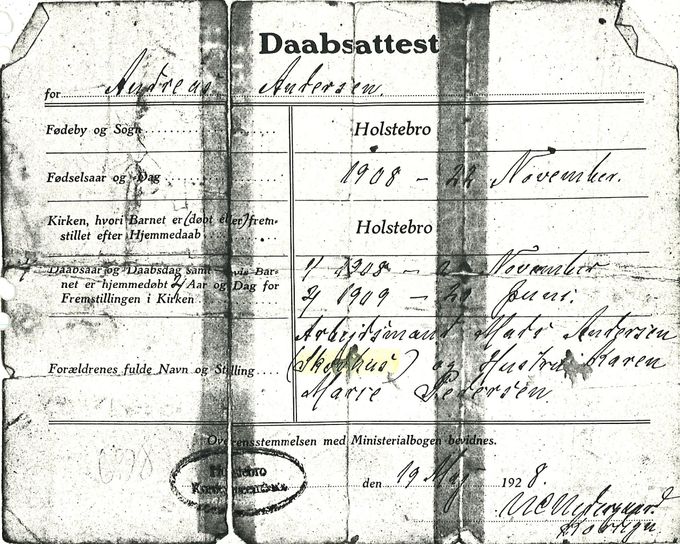 Daabsattest
for Andreas Andersen.
Fødeby og Sogn Holstebro
Fødselsaar og Dag 1908 – 22 November.
Kirken, hvori Barnet er (døbt eller) frem-
stillet efter Hjemmedaab Holstebro
1/ Daabsaar og Daabsdag samt hvis Bar- 1/ 1908 – November
net er hjemmedøbt 2/ Aar og Dag for 2/ 1909 – 20 Juni.
Fremstillingen i Kirken
Arbejdsmand Mads Andersen
Forældrenes fulde Navn og Stilling (Skovhus) og Hustru Karen
Marie Pedersen.
Overensstemmelsen med Ministerialbogen bevidnes.
Holstebro
den 19 Maj 1928.